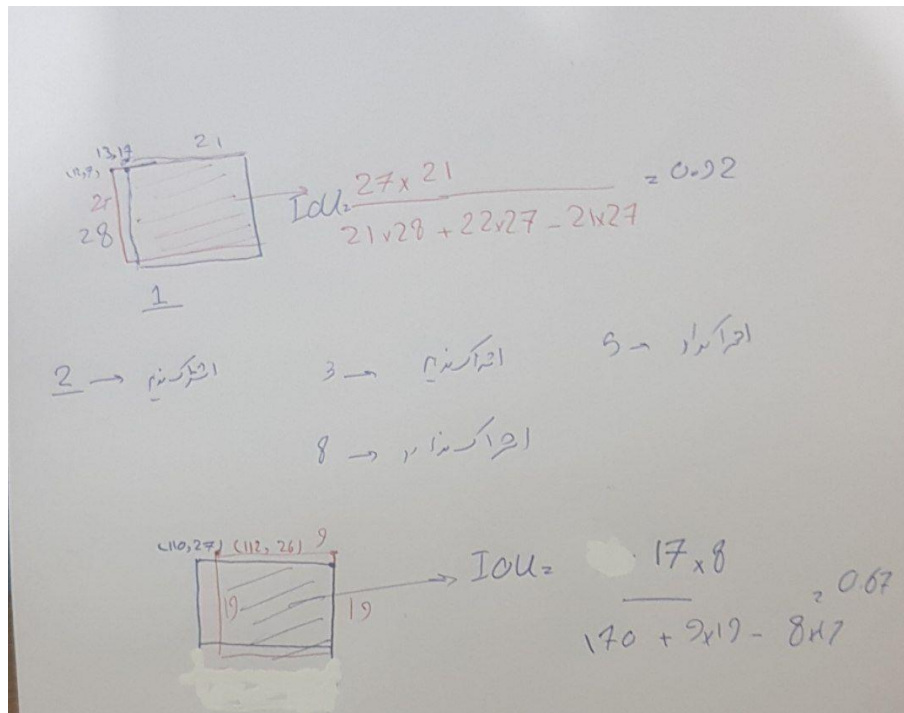 21
13,17
28
IoU = 27 x 21 / 21x28 + 22x27 - 21x27 = 0.92
1
2 → اشتراک نداریم
3 → اشتراک نداریم
5 → اشتراک ندارد
8 → اشتراک ندارد
(110,27) (112, 26) 9
19 19
IOU = 17 x 8 / 170 + 9x19 - 8x17 = 0.67